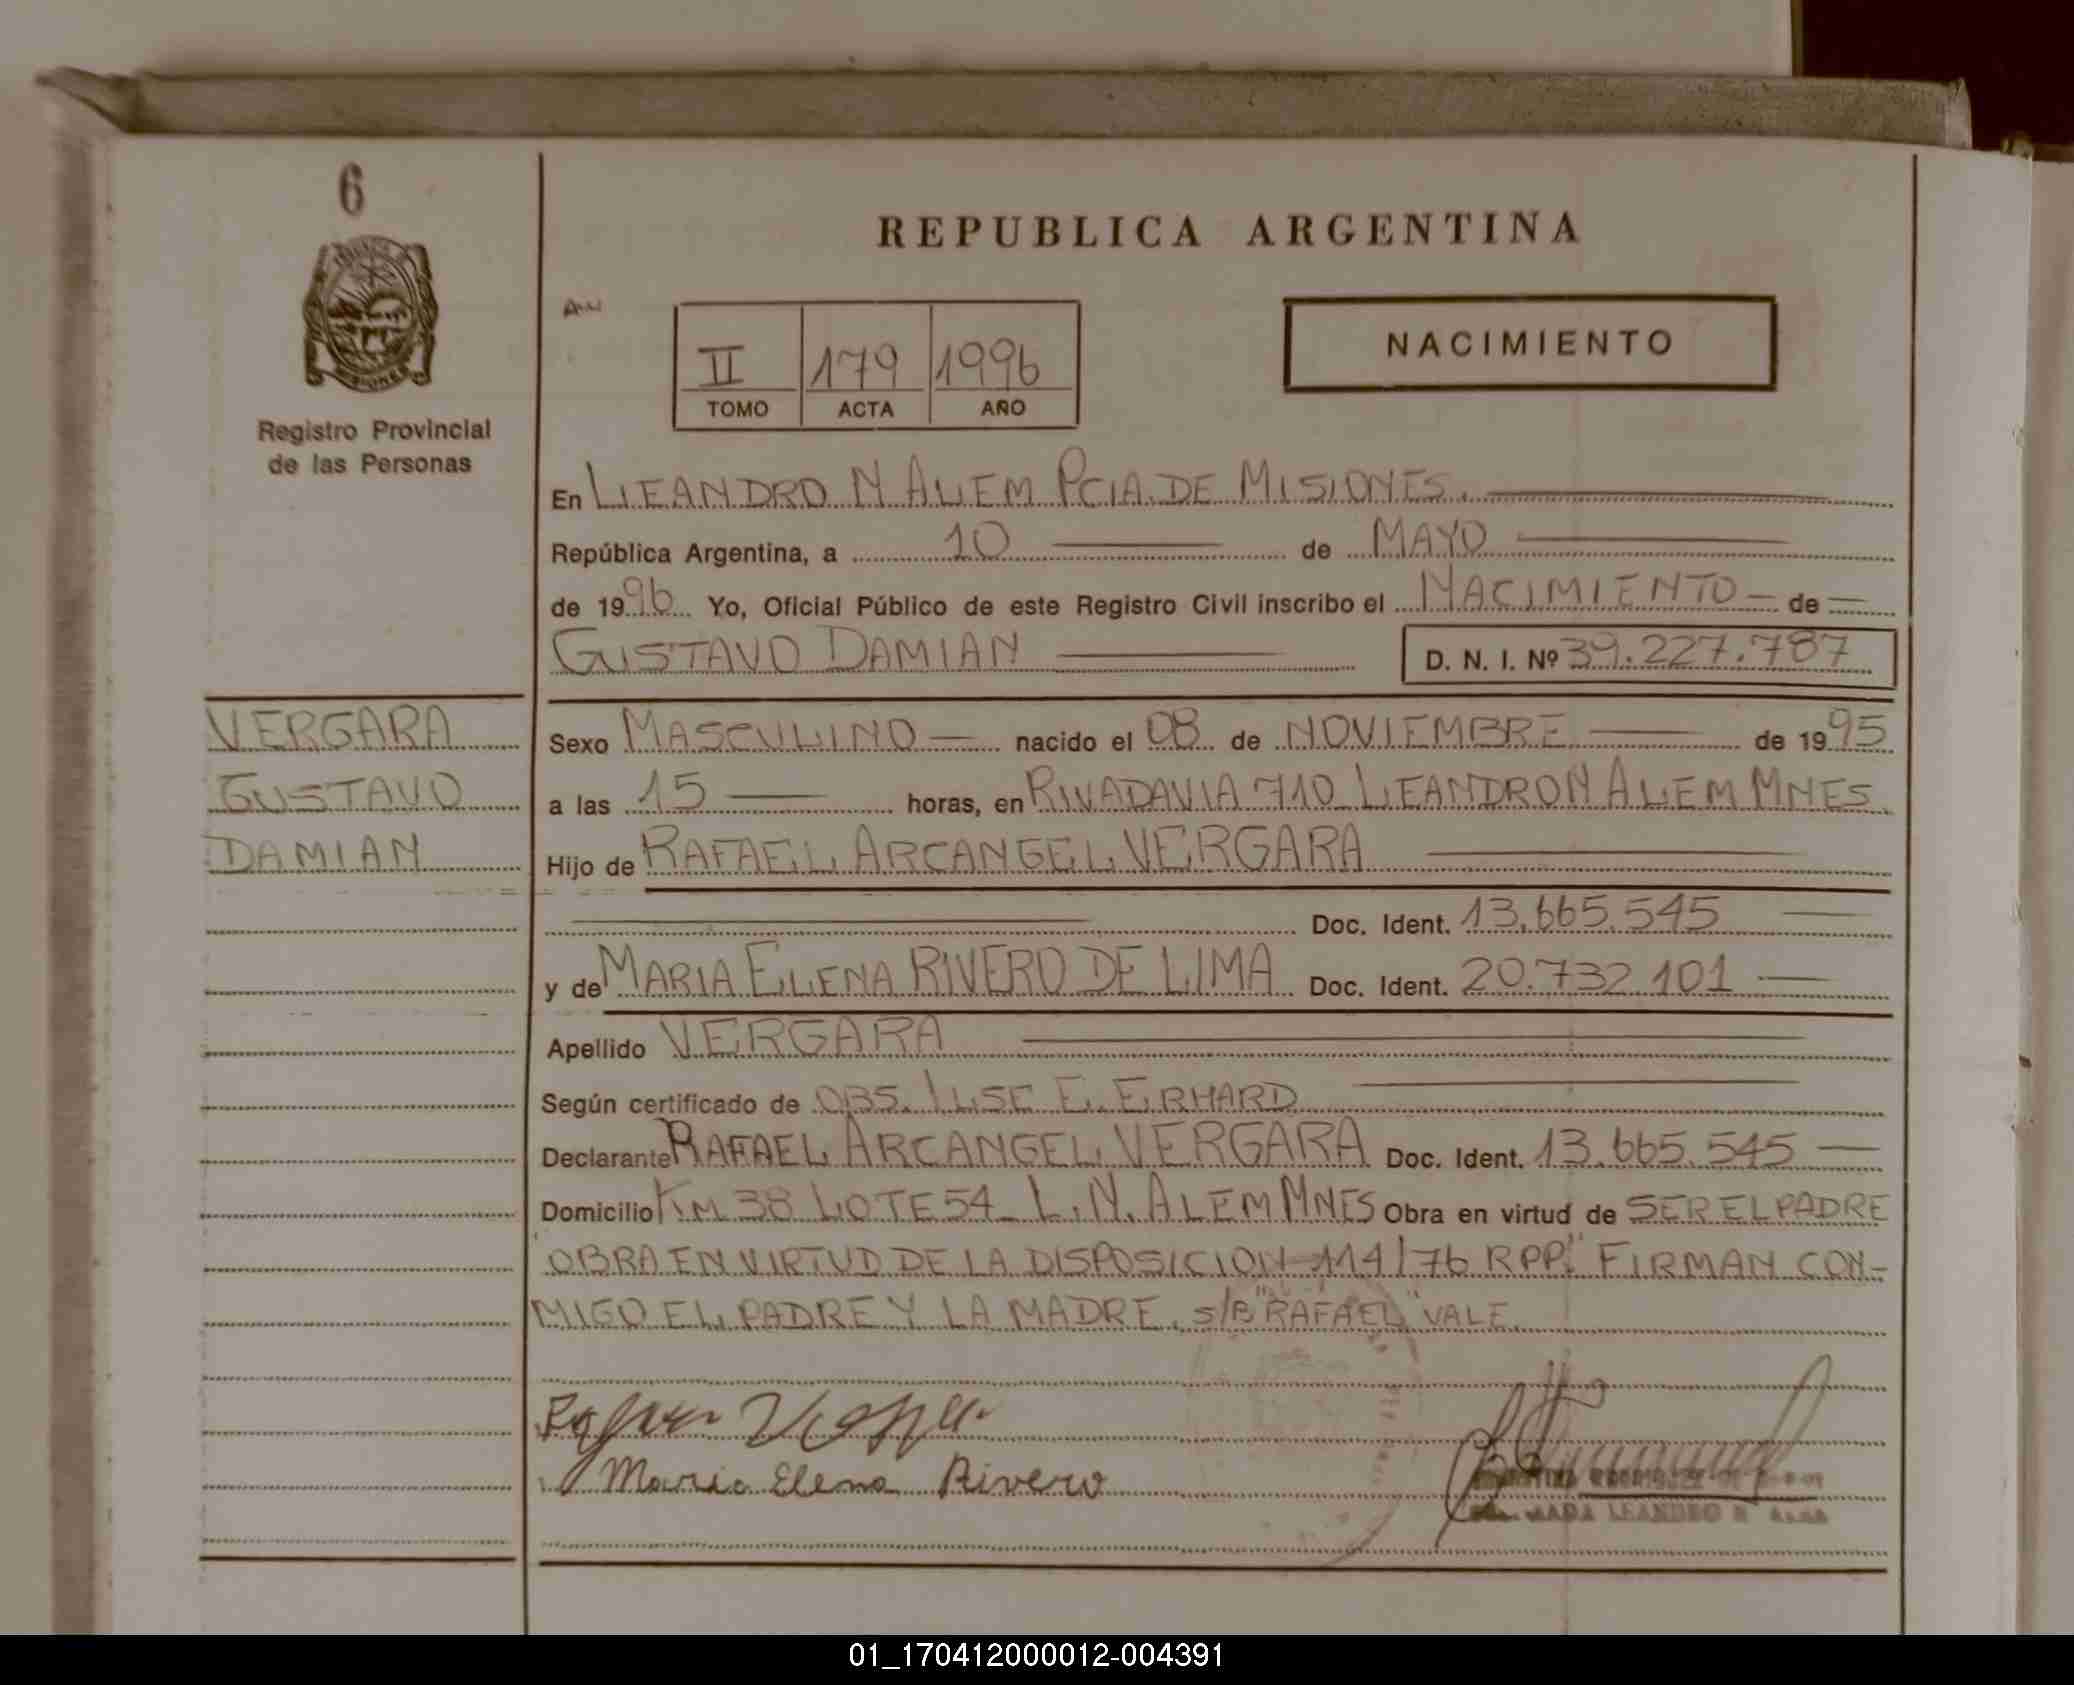 6
REPUBLICA ARGENTINA
NACIMIENTO
II 179 1996
TOMO ACTA AÑO
Registro Provincial
de las Personas
En LEANDRO N ALEM PCIA. DE MISIONES.
República Argentina, a 10 de MAYO
de 1996 Yo, Oficial Público de este Registro Civil inscribo el NACIMIENTO de
GUSTAVO DAMIAN D. N. I. Nº 39.227.787
VERGARA
GUSTAVO
DAMIAN
Sexo MASCULINO nacido el 08 de NOVIEMBRE de 1995
a las 15 horas, en RIVADAVIA 710 LEANDRO N ALEM MNES.
Hijo de RAFAEL ARCANGEL VERGARA
Doc. Ident. 13.665.545
y de MARIA ELENA RIVERO DE LIMA Doc. Ident. 20.732.101
Apellido VERGARA
Según certificado de OBS. ILSE E. ERHARD
Declarante RAFAEL ARCANGEL VERGARA Doc. Ident. 13.665.545
Domicilio KM 38 LOTE 54 L. N. ALEM MNES Obra en virtud de SER EL PADRE
"OBRA EN VIRTUD DE LA DISPOSICION 114/76 RPP." FIRMAN CON-
MIGO EL PADRE Y LA MADRE. S/B "RAFAEL" VALE.
Maria Elena Rivero
LEANDRO N
01_170412000012-004391